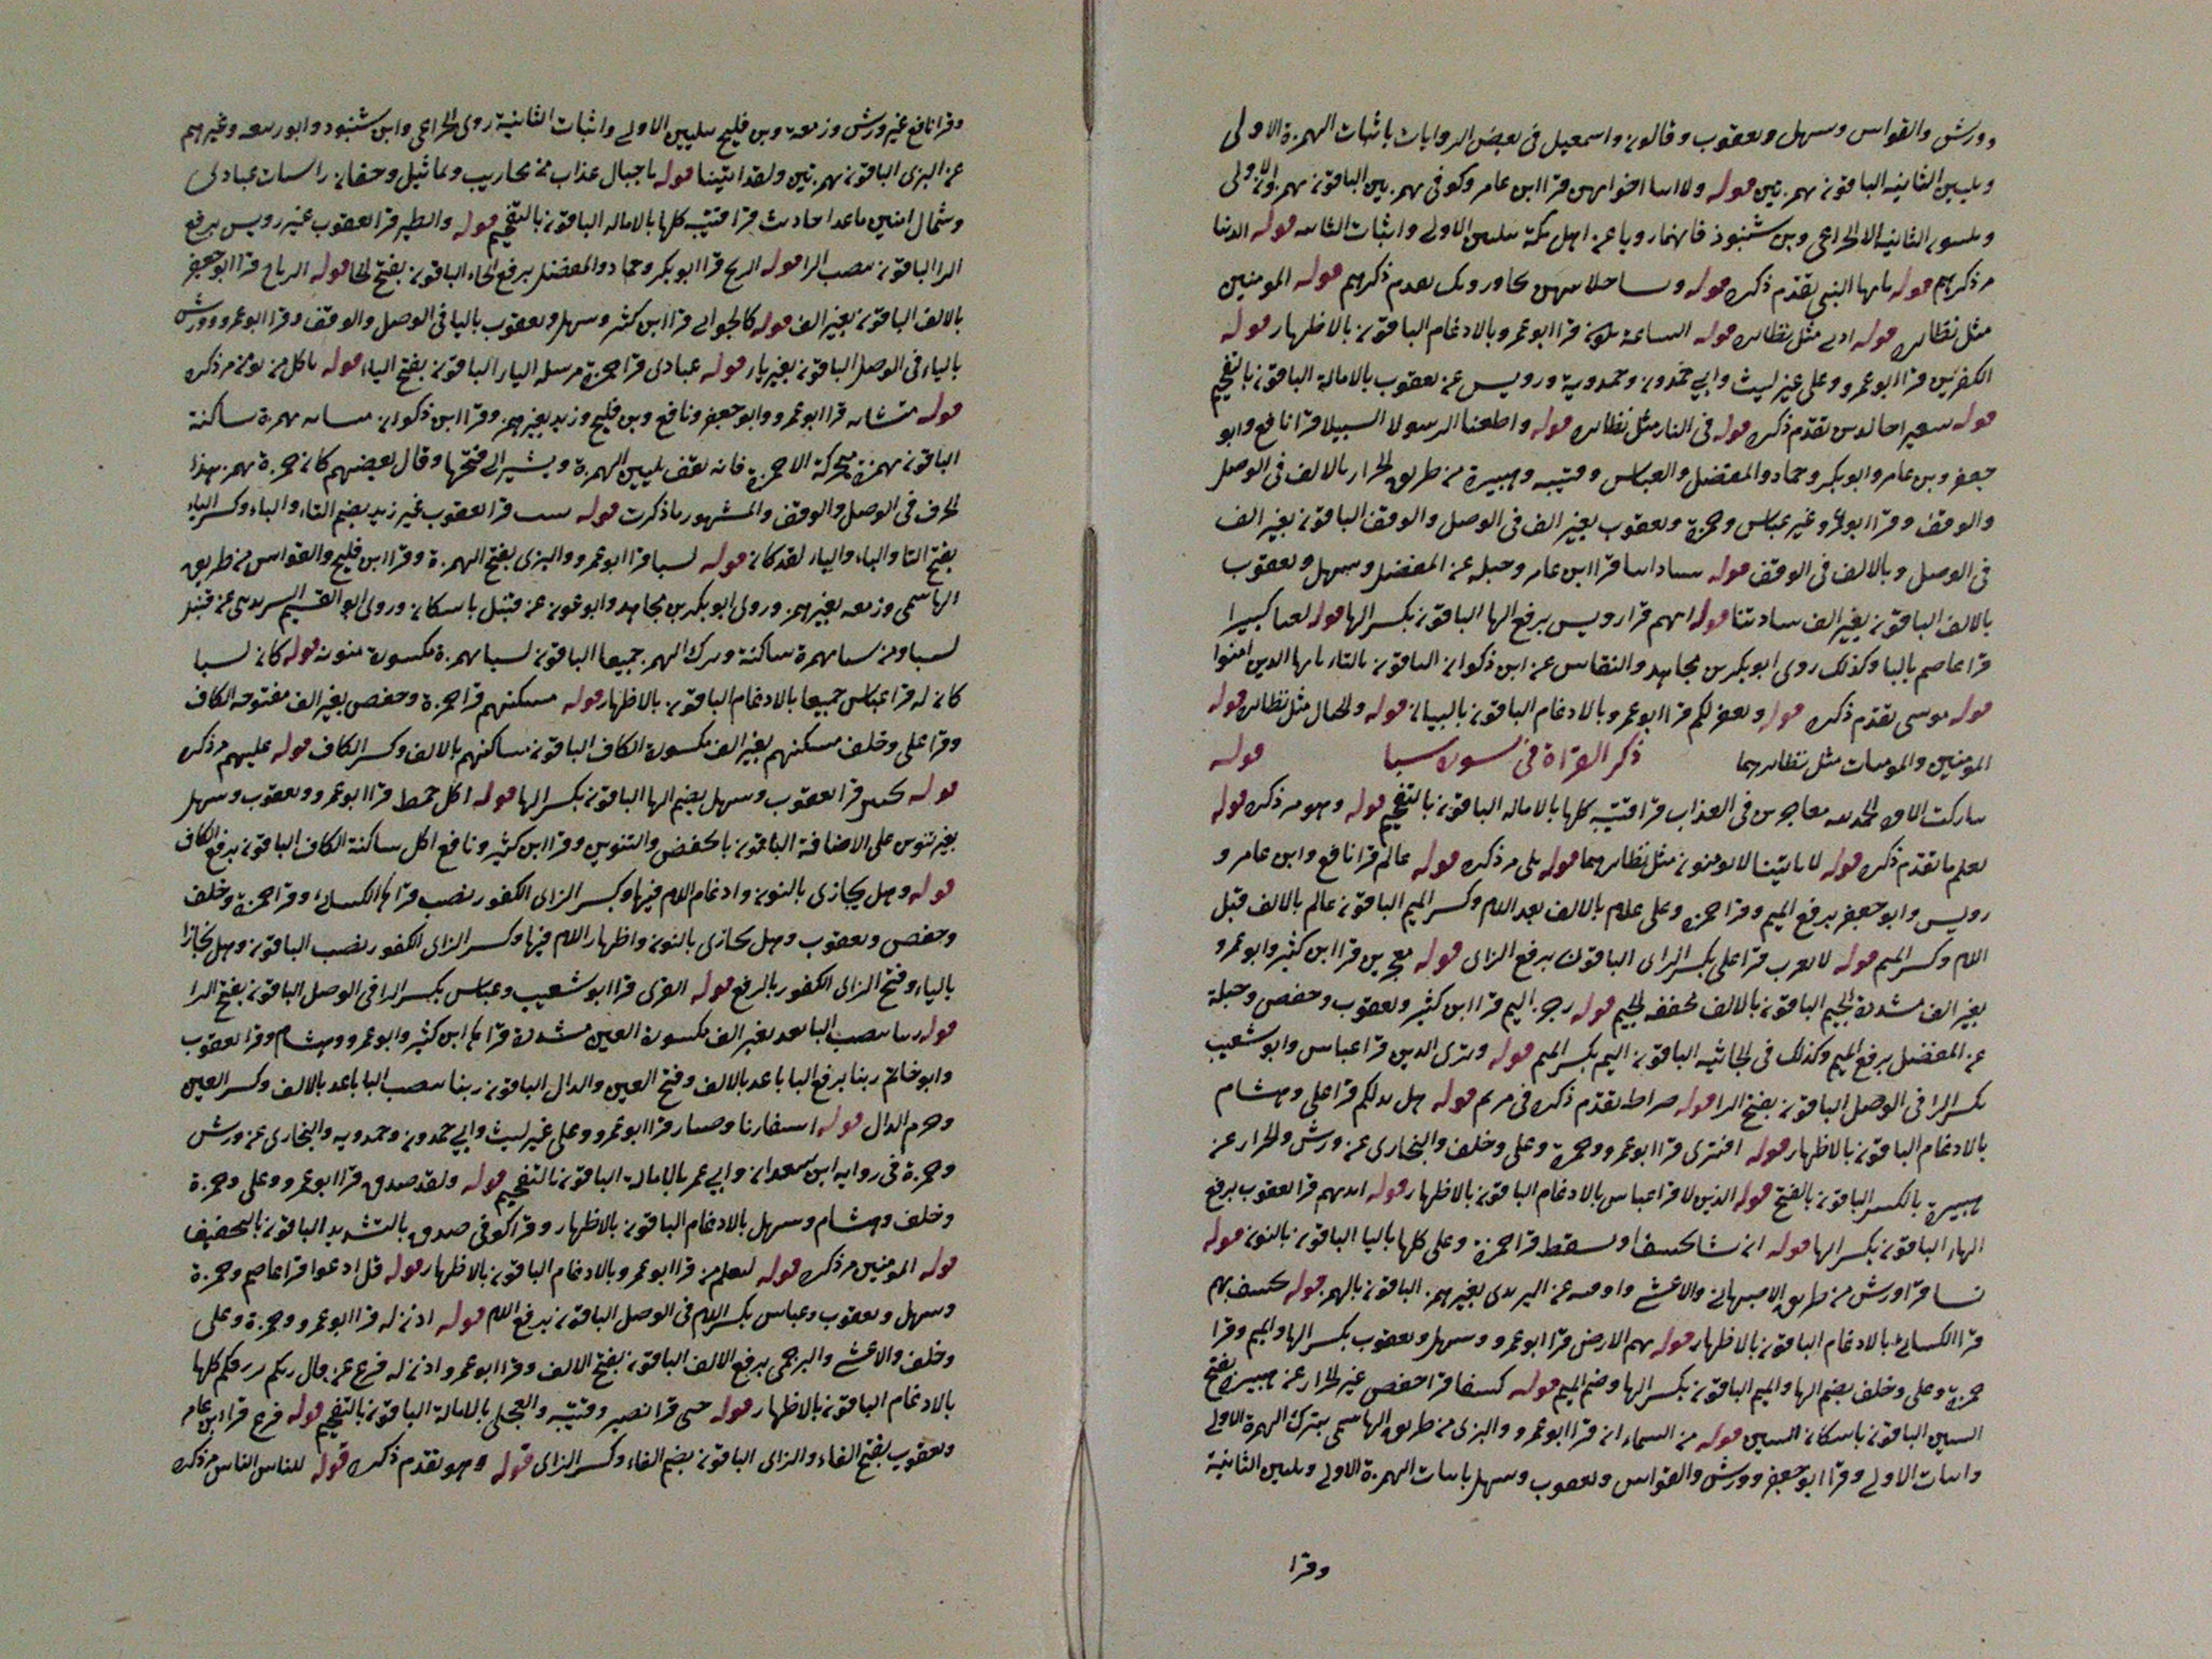 وورش والقواس وسهل ويعقوب وقالون واسمعيل في بعض الروايات باثبات الهمزة الاولى
وتليين الثانية الباقون بهمزتين قوله ولا ابنا اخوانهن قرا ابن عامر وكوفي بهمزتين الباقون بهمز الاولى
وتليين الثانية الا الخزاعي وبن شنبوذ فانهما رويا عن اهل مكة بتليين الاولى واثبات الثانية قوله الدنيا
مر ذكرهم قوله يايها النبي تقدم ذكره قوله وساحلا بيهن يجاورونك تقدم ذكرهم قوله المومنين
مثل نظائره قوله ادنى مثل نظائره قوله الساعة تكون قرا ابو عمرو بالادغام الباقون بالاظهار قوله
الكفرين قرا ابو عمرو وعلي غير ليث وابي حمدون وحمدوية ورويس عن يعقوب بالامالة الباقون بالتفخيم
قوله سعيرا خالدين تقدم ذكره قوله في النار مثل نظائره قوله واطعنا الرسولا السبيلا قرا نافع وابو
جعفر وبن عامر وابو بكر وحماد والمفضل والعباس وقتيبه وهبيرة من طريق الخزاز بالالف في الوصل
والوقف وقرا ابو عمرو غير عباس وحمزة ويعقوب بغير الف في الوصل والوقف الباقون بغير الف
في الوصل وبالالف في الوقف قوله ساداتنا قرا ابن عامر وجبله عن المفضل وسهل ويعقوب
بالالف الباقون بغير الف سادتنا قوله اتهم قرا رويس برفع الها الباقون بكسر الها قوله لعنا كبيرا
قرا عاصم بالبا وكذلك روى ابو بكر بن مجاهد والنقاس عن ابن ذكوان الباقون بالثا يايها الذين امنوا
قوله موسى تقدم ذكره قوله ويغفر لكم قرا ابو عمرو بالادغام الباقون بالبيان قوله والجبال مثل نظائره قوله
المومنين والمومنات مثل نظائرهما ذكر القراة في سورة سبا قوله
لعلم ما تقدم ذكره قوله لا تاتينا لا يومنون مثل نظائرهما قوله بلى مر ذكره قوله عالم قرا نافع وابن عامر و
رويس وابو جعفر برفع الميم وقرا حمزه وعلي علام بالالف بعد اللام وكسر الميم الباقون عالم بالالف قبل
اللام وكسر الميم قوله لا يعزب قرا علي بكسر الزاى الباقون برفع الزاى قوله معجزين قرا ابن كثير وابو عمرو
بغير الف مشددة الجيم الباقون بالالف مخففه الجيم قوله رجز اليم قرا ابن كثير ويعقوب وحفص وجبلة
عن المفضل برفع الميم وكذلك في الجاثيه الباقون اليم بكسر الميم قوله وترى الذين قرا عباس وابو شعيب
بكسر الرا في الوصل الباقون بفتح الرا قوله صراط تقدم ذكره في مريم قوله هل ندلكم قرا علي وهشام
بالادغام الباقون بالاظهار قوله افترى قرا ابو عمرو وحمزة وعلي وخلف والبخارى عن ورش والخزاز عن
هبيرة بالكسر الباقون بالفتح قوله الذين لا قرا عباس بالادغام الباقون بالاظهار قوله ايديهم قرا يعقوب برفع
الهاء الباقون بكسر الها قوله ان نشا نخسف او نسقط قرا حمزة وعلي كلها باليا الباقون بالنون قوله
نشا قرا ورش من طريق الاصبهاني والاعشى واوقيه عن اليزيدى بغير همز الباقون بالهمز قوله نخسف بهم
قرا الكسائي بالادغام الباقون بالاظهار قوله بهم الارض قرا ابو عمرو وسهل ويعقوب بكسر الها والميم وقرا
حمزة وعلي وخلف بضم الها والميم الباقون بكسر الها وضم الميم قوله كسفا قرا حفص غير الخزاز عن هبيرة بفتح
السين الباقون باسكان السين قوله من السماء ان قرا ابو عمرو والبزى من طريق الهاشمى بترك الهمزة الاولى
واثبات الاولى وقرا ابو جعفر وورش والقواس ويعقوب وسهل باثبات الهمزة الاولى وتليين الثانية
وقرا
وقرا نافع غير ورش وزمعة وبن فليح بتليين الاولى واثبات الثانية روى الخزاعي وابن شنبوذ وابو ربيعه وغيرهم
عن البزى الباقون بهمزتين ولقد اتينا قوله يا جبال عذاب من محاريب وتماثيل وجفان راسيات عبادى
وشمال امنين باعد احاديث قرا قتيبه كلها بالاماله الباقون بالتفخيم قوله والطير قرا يعقوب غير رويس برفع
الرا الباقون بنصب الرا قوله الريح قرا ابو بكر وحماد والمفضل برفع الحاء الباقون بفتح الحا قوله الرياح قرا ابو جعفر
بالالف الباقون بغير الف قوله كالجوابي قرا ابن كثير وسهل ويعقوب باليا في الوصل والوقف وقرا ابو عمرو وورش
بالياء في الوصل الباقون بغير ياء قوله عبادى قرا حمزة مرسله الياء الباقون بفتح الياء قوله تاكل من يومن مر ذكره
قوله منساته قرا ابو عمرو وابو جعفر ونافع وبن فليح وزيد بغير همز وقرا ابن ذكوان منساته بهمزة ساكنة
الباقون بهمزة متحركة الا حمزة فانه يقف بتليين الهمزة ويشير الى فتحها وقال بعضهم كان حمزة يهمز هذا
الحرف في الوصل والوقف والمشهور ما ذكرت قوله تبينت قرا يعقوب غير زيد بضم التاء والباء وكسر الياء
بفتح التا والباء والياء لقد كان قوله لسبا قرا ابو عمرو والبزى بفتح الهمزة وقرا ابن فليح والقواس من طريق
الهاشمى وزمعه بغير همز وروى ابو بكر بن مجاهد وابو عون عن قنبل باسكان وروى ابو القسم السريدى عن قنبل
لسبا ومن سبا بهمزة ساكنة وترك الهمز جميعا الباقون لسبا بهمزة مكسورة منونه قوله كان لسبا
كان له قرا عباس جميعا بالادغام الباقون بالاظهار قوله مسكنهم قرا حمزة وحفص بغير الف مفتوحه الكاف
وقرا علي وخلف مسكنهم بغير الف مكسورة الكاف الباقون مساكنهم بالالف وكسر الكاف قوله عليهم مر ذكره
قوله بجنتيهم قرا يعقوب وسهل بضم الها الباقون بكسر الها قوله اكل خمط قرا ابو عمرو ويعقوب وسهل
بغير تنوين على الاضافة الباقون بالخفض والتنوين وقرا ابن كثير ونافع اكل ساكنة الكاف الباقون برفع الكاف
قوله وهل يجازى بالنون وادغام اللام فيها وكسر الزاى الكفور نصب قراها الكسائي وقرا حمزة وخلف
وحفص ويعقوب وهل نجازى بالنون واظهار اللام فيها وكسر الزاى الكفور نصب الباقون وهل يجازا
بالياء وفتح الزاى الكفور بالرفع قوله القرى قرا ابو شعيب وعباس بكسر الرا في الوصل الباقون بفتح الرا
قوله ربنا بنصب البا بعد بغير الف مكسورة العين مشددة قراها ابن كثير وابو عمرو وهشام وقرا يعقوب
وابو حاتم ربنا برفع البا باعد بالالف وفتح العين والدال الباقون ربنا بنصب البا باعد بالالف وكسر العين
وجزم الدال قوله اسفارنا وصبار قرا ابو عمرو وعلي غير ليث وابي حمدون وحمدويه والبخارى عن ورش
وحمزة في روايه ابن سعدان وابي عمر بالامالة الباقون بالتفخيم قوله ولقد صدق قرا ابو عمرو وعلي وحمزة
وخلف وهشام وسهل بالادغام الباقون بالاظهار وقرا كوفي صدق بالتشديد الباقون بالتخفيف
قوله المومنين مر ذكره قوله لنعلم من قرا ابو عمرو بالادغام الباقون بالاظهار قوله قل ادعوا قرا عاصم وحمزة
وسهل ويعقوب وعباس بكسر اللام في الوصل الباقون برفع اللام قوله اذن له قرا ابو عمرو وحمزة وعلي
وخلف والاعشى والبرجمى برفع الالف الباقون بفتح الالف وقرا ابو عمرو اذن له فزع عن قال ربكم يرزقكم كلها
بالادغام الباقون بالاظهار قوله حتى قرا نصير وقتيبه والعجلى بالامالة الباقون بالتفخيم قوله فزع قرا ابن عامر
ويعقوب بفتح الفاء والزاى الباقون بضم الفاء وكسر الزاى قوله وهو تقدم ذكره قوله للناس الناس مر ذكره